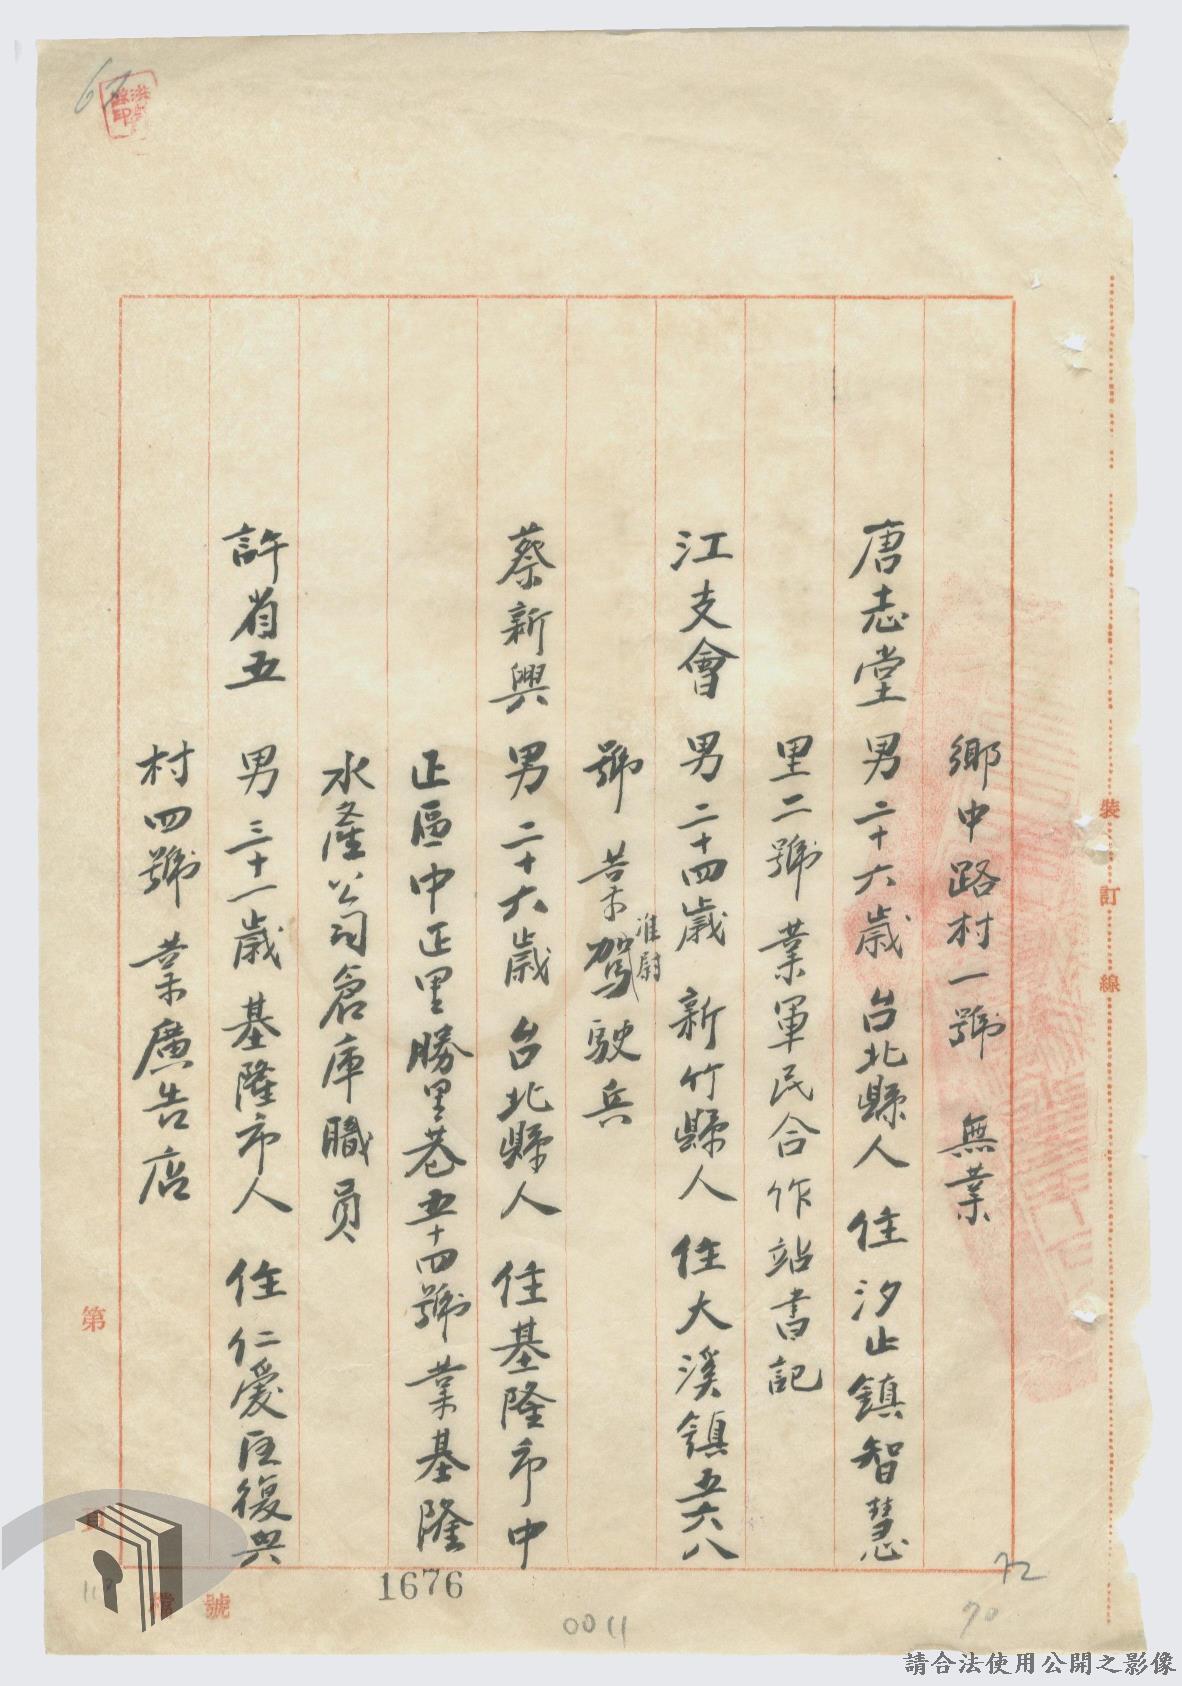 鄉中路村一號　無業
唐志堂　男二十六歲　台北縣人　住汐止鎮智慧
里二號　業軍民合作站書記
江支會　男二十四歲　新竹縣人　住大溪鎮五六八
號　業准尉駕駛兵
蔡新興　男二十六歲　台北縣人　住基隆市中
正區中正里勝里巷五十四號　業基隆
水產公司倉庫職員
許省五　男三十一歲　基隆市人　住仁愛區復興
村四號　業廣告店
裝訂線
第
頁
檔號
1676
0011
72
70
67
請合法使用公開之影像